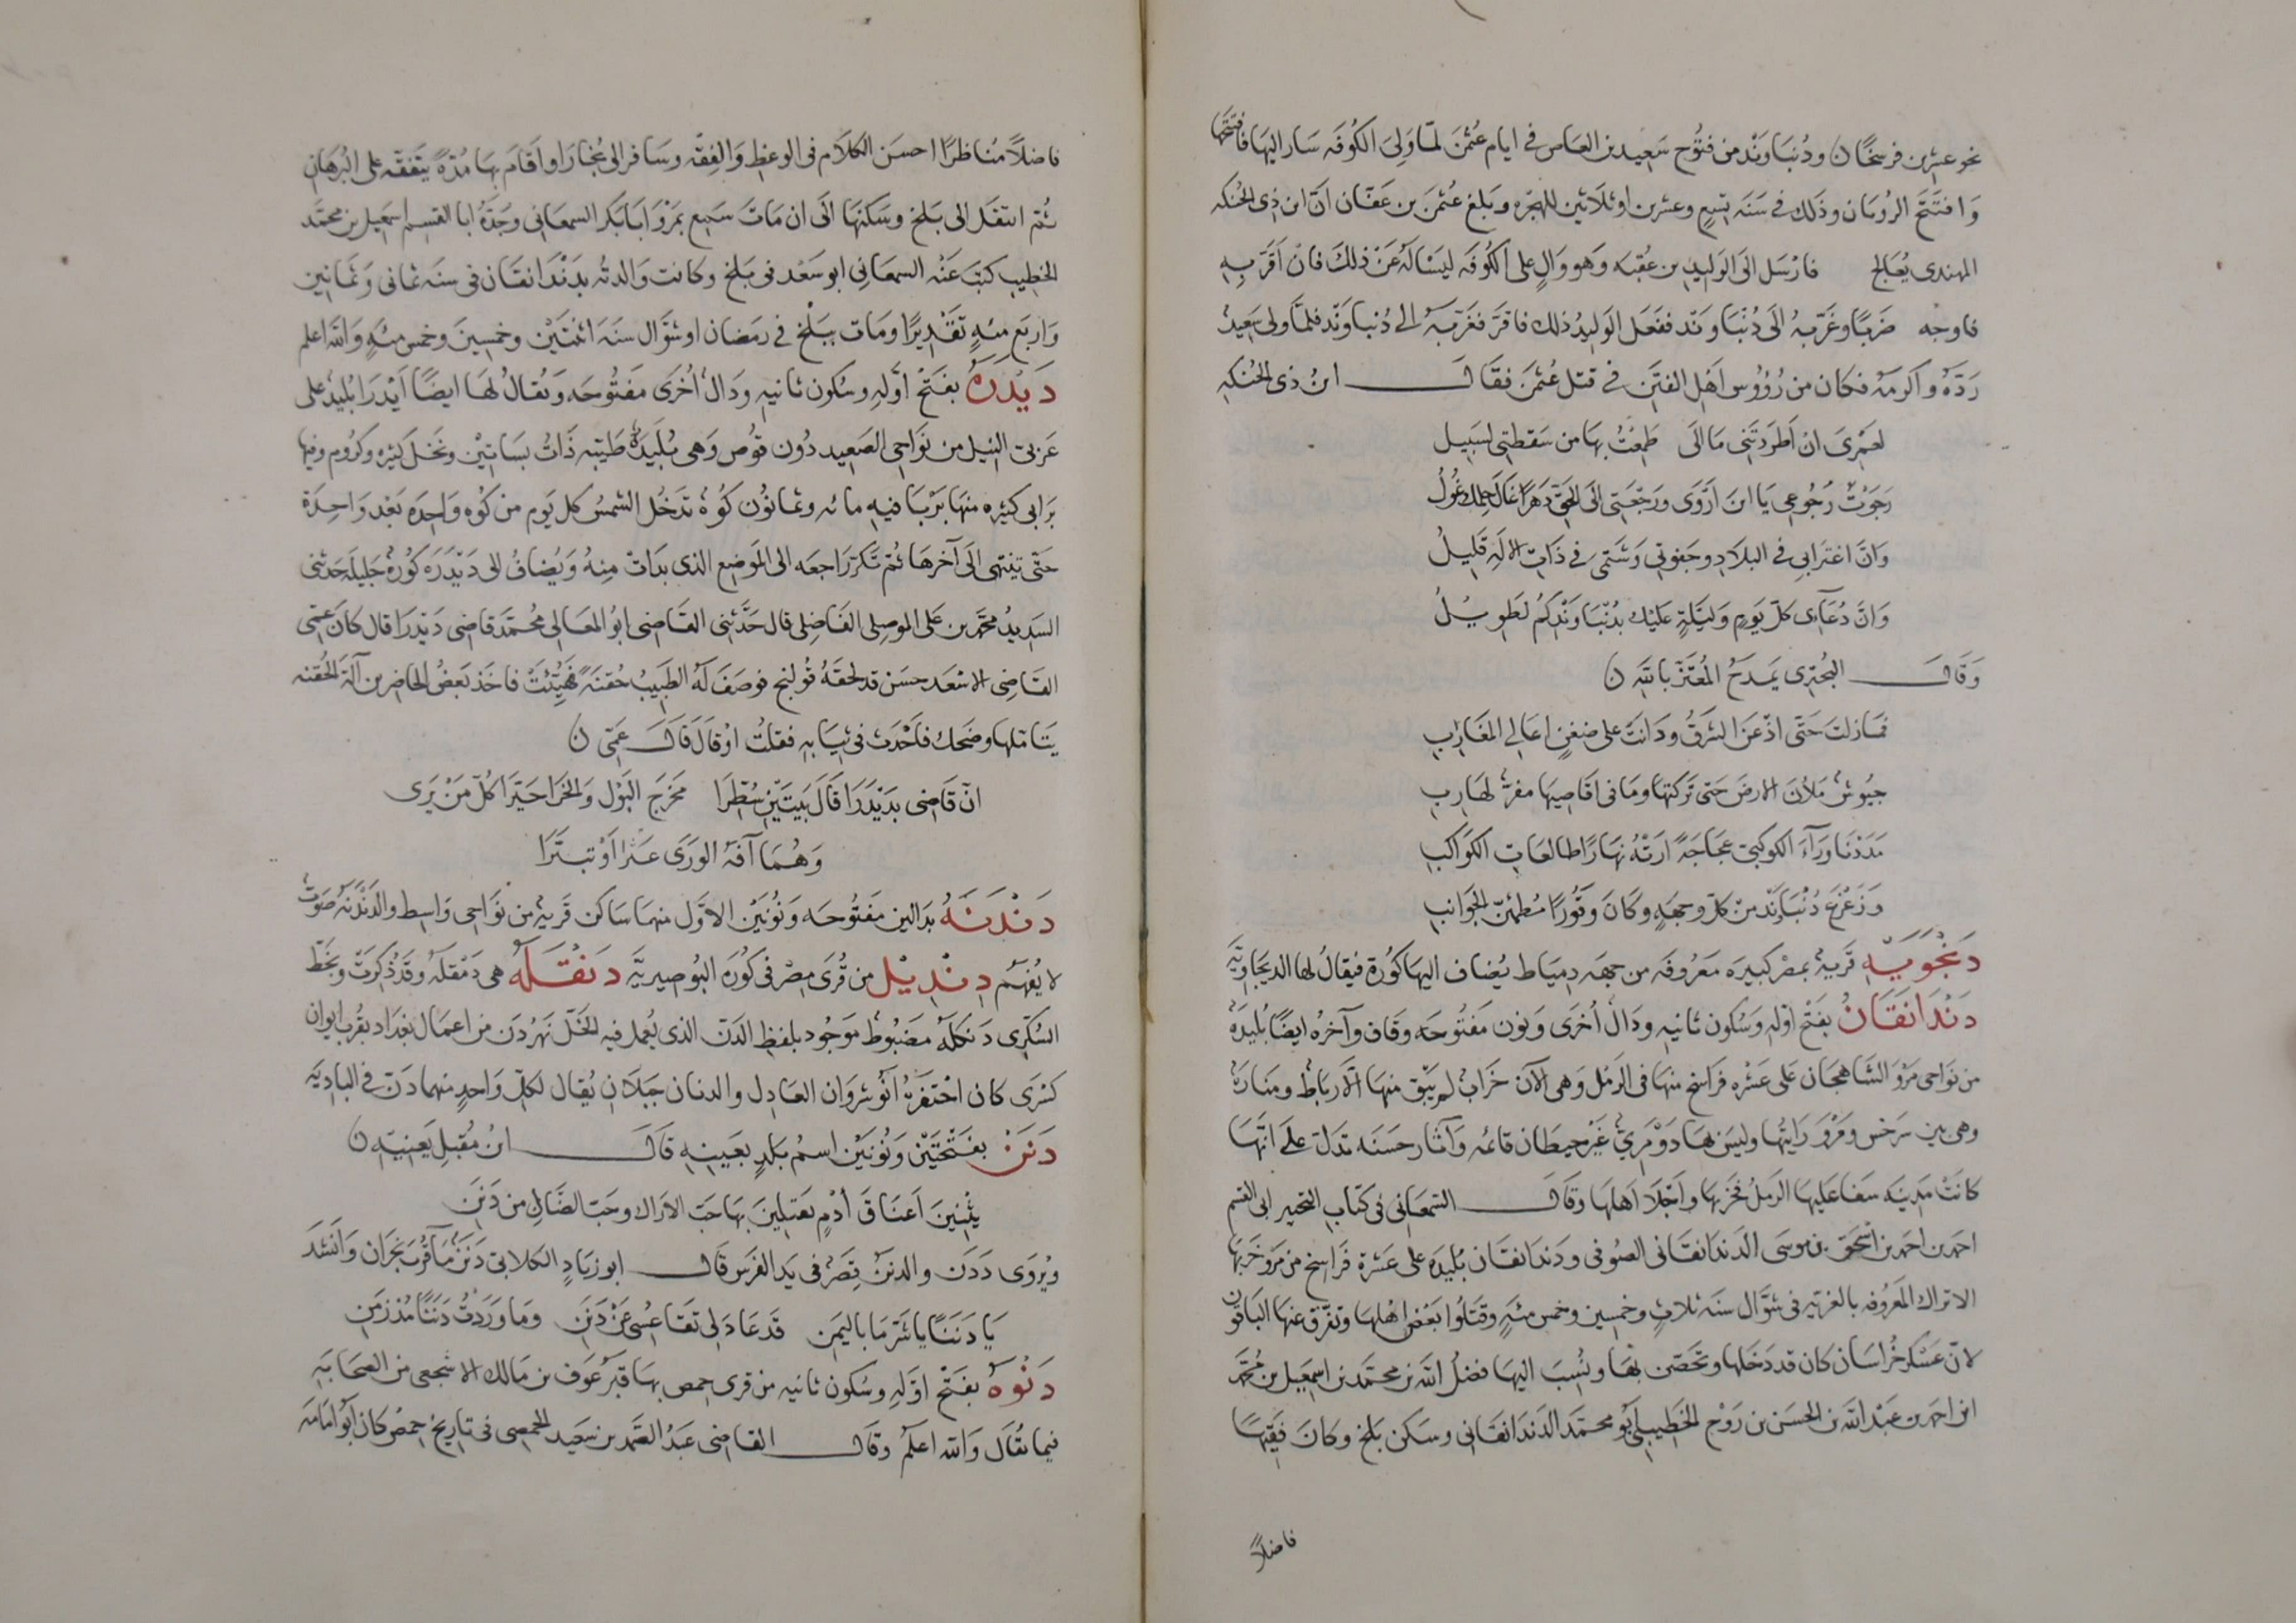 نحو عشرين فرسخًا ن ودُنبَاوَنْد من فتُوح سَعِيد بن العَاص في ايام عُثمٰن لمّا وَلِىَ الكُوفَه سَار اليهَا فافتتحها
وَافتَتَحَ الرويَان وذَلك في سَنَه تِسْعٍ وعشرين او ثلاثين للهجرَه وبَلغ عُثمٰن بن عَفّان انّ ابن ذى الحُنكه
النهدى يُعَالج فارْسَل الى الوَليد بن عُقبَه وَهو وَالٍ على الكُوفَه ليَسْالَهُ عَنْ ذلكَ فان اَقَرّ بِهِ
فاوجعه ضَربًا وغَرّبهُ الَى دُنْبَاوَنْد ففعَل الوَليدُ ذلك فاقرَّ فغَرَّبَهُ الى دُنباوَنْد فلمّا ولى سَعِيدُ
رَدّهُ واكرمَهُ فكان من رُؤُوس اَهْل الفتَن في قتل عُثمٰن فقَال ابنُ ذى الحُنكهِ
لعَمْرىَ ان اَطرَدتَنى مَا الَى طَمِعْتُ بهَا من سَقطتِى لسَبيل
رَجَوْتُ رُجُوعِى يَا ابنَ اَرْوَى ورَجْعَتِى الَى الحَقّ دَهرًا غَالَ حِلمَك غُولُ
وَانّ اغترَابِى في البلادِ وجَفوَتِى وَشَتمِى في ذَاتِ الالَهِ قَلِيلُ
وَانّ دُعَآىِ كلّ يَومٍ وَليْلَةٍ عَليْك بدُنْبَاوَنْدِكُم لَطَوِيلُ
وَقَال البُحْتِرى يَمدَحُ المُعتَزّ باللّهِ ن
فمَا زلتَ حَتّى اذعَنَ الشرقُ وَدَانَتْ على ضغنٍ اعَالى المَغَاربِ
جيُوشٌ مَلأنَ الارضَ حَتى تَركنهَا ومَا فى اقَاصِيهَا مفرٌّ لهَاربِ
مَدَدْنَ وَرَآءَ الكوكبىّ عجاجَةً ارَتْهُ نهَارًا طالعَاتِ الكَوَاكبِ
وَزَعْزَعَ دُنْبَاوَنْد من كلّ وجهَةٍ وكَانَ وَقُورًا مُطمئنّ الجوَانبِ
دَنْجَوَيْه قَريةٌ بمصْر كبيرَه مَعروُفَه من جهَه دِميَاط يُضَاف اليهَا كُورَة فيقالُ لهَا الدنجاويَّه
دَنْدَانَقَانُ بفَتْح اوّلهِ وَسُكون ثَانيهِ ودَالٌ اُخرَى وَنون مَفتُوحَه وقَاف وآخرُه ايضًا بُليدَةٌ
من نوَاحى مَرْو الشاهجَان عَلى عَشْره فرَاسخ منهَا فى الرَمْل وَهى الآن خَرَابٌ لم يَبق منهَا الا رباطٌ ومنَارَةٌ
وهى بين سَرَخس ومَرْو رَايتُهَا وليسَ بهَا ذو مَرِىٍّ غَيْر حيطَان قائمه وآثَار حسَنَه تدَلّ عَلى انّهَا
كانَتْ مَدِينَه سَفا عَليهَا الرَملُ فخرّبهَا واَجْلَا اَهلهَا وقَال السَّمعَانى فى كتَاب التحبير ابى القسم
احمد بن احمد بن اسْحٰق بن موسَى الدَندَانقَانى الصُوفى ودَندَانقَان بُليدَة على عَشرة فَرَاسخ من مَرْو خَرّبهَا
الاتراك المَعرُوفه بالغزيّه فى شوَّال سنَه ثلَاثٍ وخمسين وخمس مئةٍ وقتَلُوا بَعْضَ اهْلهَا وتفرّق عَنهَا البَاقون
لانّ عسْكر خُرَاسَان كان قد دَخلها وتحصّن بهَا وينُسَبَ اليهَا فضْلُ اللّه بن محمّد بن اسمَعِيل بن مُحمّد
ابن احمد بن عَبْد اللّه بن الحسَن بن رَوْح الخَطِيبى اَبُو محمَّد الدَندَانقَانى وسَكن بَلخ وكَانَ فَقِيهًا
فاضلاً
فاضلاً مُنَاظرًا احسَن الكلاَم فى الوعظ وَالفِقه وسَافر الى بُخَارَا واَقَامَ بهَا مُدّةً يتَفقّه على البُرهَان
ثُم انتقَل الى بَلخ وسَكنَهَا الَى ان مَاتَ سَمِع بمَرْوَ ابَا بَكر السمعَانى وجَدَّهُ ابا القسِم اسمعيل بن محمَّد
الخطِيب كتبَ عَنْه السمعَانِى ابو سَعْد فى بَلخ وكَانت وَالدتُه بدَنْدَانقَان فى سنَه ثمانى وَثمَانين
وَاربع مئهٍ تَقدِيرًا ومَات بِبَلخ في رمَضَان او شوَّال سنَه اثنتَيْن وخمسينَ وخمس مئةٍ وَاللّه اعلم
دَيْدَرَهُ بفَتْح اوّلهِ وسُكون ثانيهِ ودَالٌ اُخْرَى مَفتُوحَه وَيُقالُ لهَا ايضًا اَيْدَرَا بُليدٌ على
غَربىّ النِيل من نَوَاحِى الصَعيد دُون قوُص وَهى بُلَيدَةٌ طَيّبه ذَاتُ بسَاتيْن ونَخل كثيره وكرُوم وفيهَا
بَرَابى كثيره منهَا بَرْبَا فيهِ مائه وثمانُون كَوّةً تدخُل الشمسُ كل يَوم من كوّه وَاحِدَه بَعْد وَاحِدَة
حَتّى تنتهى الَى آخرهَا ثُم تَكرّ رَاجعَه الى المَوضِع الذى بدَات مِنهُ وَيُضَافُ الى دَيْدَرَه كُورَةٌ جَليلَه حَدثنى
السَديدُ محمَّد بن عَلى الموصِلى الفَاضِلى قال حَدَّثنى القَاضى ابُو المعَالى مُحمّد قاضى دَيْدَرَا قال كانَ عَمّى
القَاضِى الاسْعَد حسَن قد لحقَهُ قُولنج فوصَفَ لَهُ الطَبيبُ حُقنَةً فهُيّئتْ فاخَذ بَعضُ الحَاضرين آلَة الحُقنه
يَتَاملهَا وضَحك فاَحْدَث فى ثيَابهِ فقلتُ اوْ قَالَ قَال عَمّى ن
انّ قَاضِى بدَيْدَرَا قَالَ بَيتَيْن سُطّرَا مَخرَجَ البَوْل وَالخَرَا حَيّرَا كُلّ مَنْ يَرَى
وَهُمَا آفَهُ الوَرَى عَسُرَا اَوْ تيَسَّرَا
دَنْدَنَهُ بدَالين مَفتُوحَه وَنُونَيْن الاوَّل منهمَا سَاكن قَريةٌ من نوَاحى وَاسِط والدَنْدَنَهُ صَوْتٌ
لا يُفهَمُ دِنْدِيْل من قُرَى مصْر فى كُورَه البُوصِيريَّه دَنْقَلَهُ هى دَمْقلَهُ وقَدْ ذُكرَتْ وبخطّ
السُكّرِى دَنكلَهُ مَضبُوطٌ مَوجُود بلفظِ الدَنّ الذى يُعمل فيهِ الخَلّ نَهرُ دَن من اعمال بغدَاد بقُرب ايوان
كسْرَى كان احْتَفَرَهُ اَنُوشروَان العَادِل والدنان جَبَلَان يُقال لكلّ وَاحدٍ منهما دَنّ فى البَادِيَه
دَنَنْ بفَتْحتَيْن وَنُونَيْن اسمُ بَلدٍ بعَينِهِ قَال ابنُ مُقبل يَعنِيهِ ن
يثْنِينَ اَعنَاقَ اُدْمٍ يَعتَلِينَ بهَا حَبّ الاَرَاك وحَبّ الضَالِ من دَنَن
ويُروَى دَدَن والدنَنُ قِصَرٌ فى يَد الفَرَس قَال ابو زيَادٍ الكلابى دَنَنٌ مَآءٌ قُربَ نجرَان وَانشدَ
يَا دَنَنًا يا شَرّ مَا باليَمَن قَد عَاد لى تقَاعِسُى عَنْ دَنَن ومَا وَرَدتُ دَننًا مُذ زمَن
دَنْوَهُ بفَتْح اوّلهِ وسُكون ثانيهِ من قرى حمص بهَا قَبْرُ عَوف بن مَالك الاشجعى من الصحَابه
فيما يُقَال وَاللّه اعلم وقَال القَاضِى عَبْدُ الصَمَد بن سَعِيد الحمصى فى تاريخ حمصْ كان اَبُو امَامَه